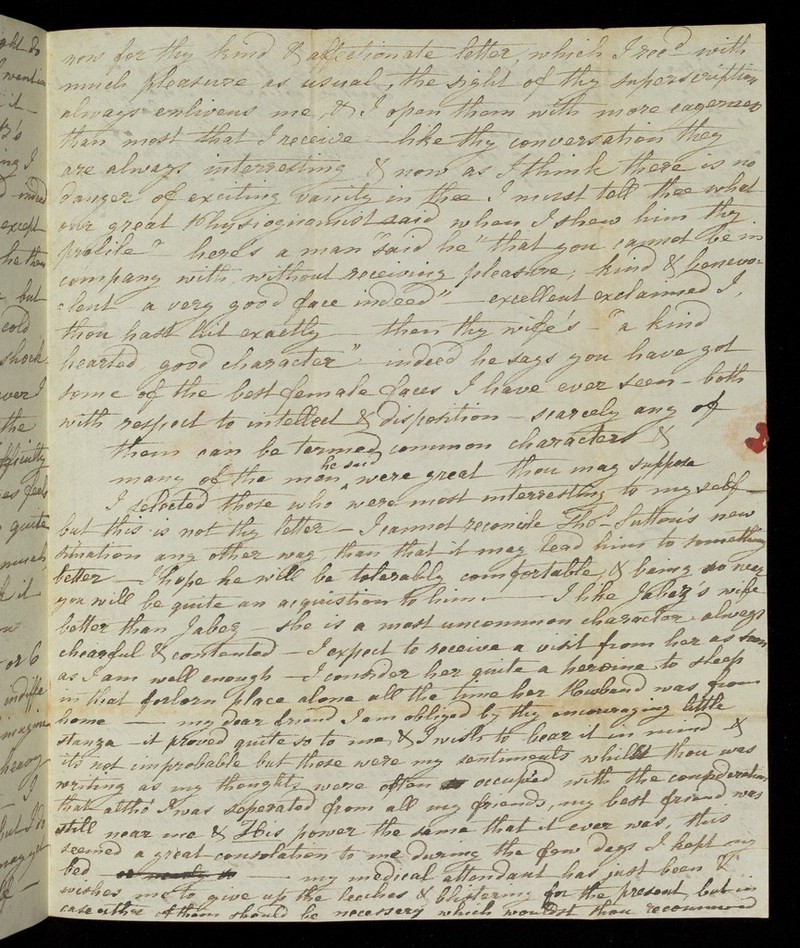 now for thy kind & affectionate letter, which I recd with
much pleasure as usual, the sight of thy superscription
always enlivens me, & I open them with more eagerness
than most that I receive — like thy conversation they
are always interesting & now as I think there is no
danger of exciting vanity in thee I must tell thee what
our great Physiognomist said when I shew him thy
profile" — here's a man "said he" that you cannot be in
company with, without receiving pleasure; kind & benevo=
=lent a very good face indeed" — excellent exclaimed I,
thou hast hit exactly — then thy wife's — "a kind
hearted, good character" indeed he says you have got
some of the best female faces I have ever seen — both
with respect to intellect & disposition — scarcely any of
them can be termed common characters &
many of the men he said were great thou may suppose
I selected those who were most interesting to myself —
but this is not thy letter — I cannot reconcile Thos Sutton's new
situation any other way, than that it may lead him to something
better — I hope he will be tolerably comfortable, & being so near
you will be quite an acquistion to him. — I like Jabez's wife
better than Jabez — she is a most uncommon character always
chearful & contented — I expect to receive a visit from her as soon
as I am well enough — I consider her quite a heroine to sleep
in that forlorn place alone all the time her Husband was from
home — my dear friend I am obliged by thy encouraging little
stanza — it proved quite so to me, & I wish to bear it in mind &
its not improbable but those were my sentiments whilst thou was
writing as my thoughts were often occupied with the consideration,
that altho' I was seperated from all my friends, my best friend was
still near me & His power the same that it ever was, this
seemed a great consolation to me during the few days I kept my
bed — my medical attendant has just been &
wishes me to give up the leeches & blistering for the present, but in
case either of them should be necessary which wouldst thou recommend